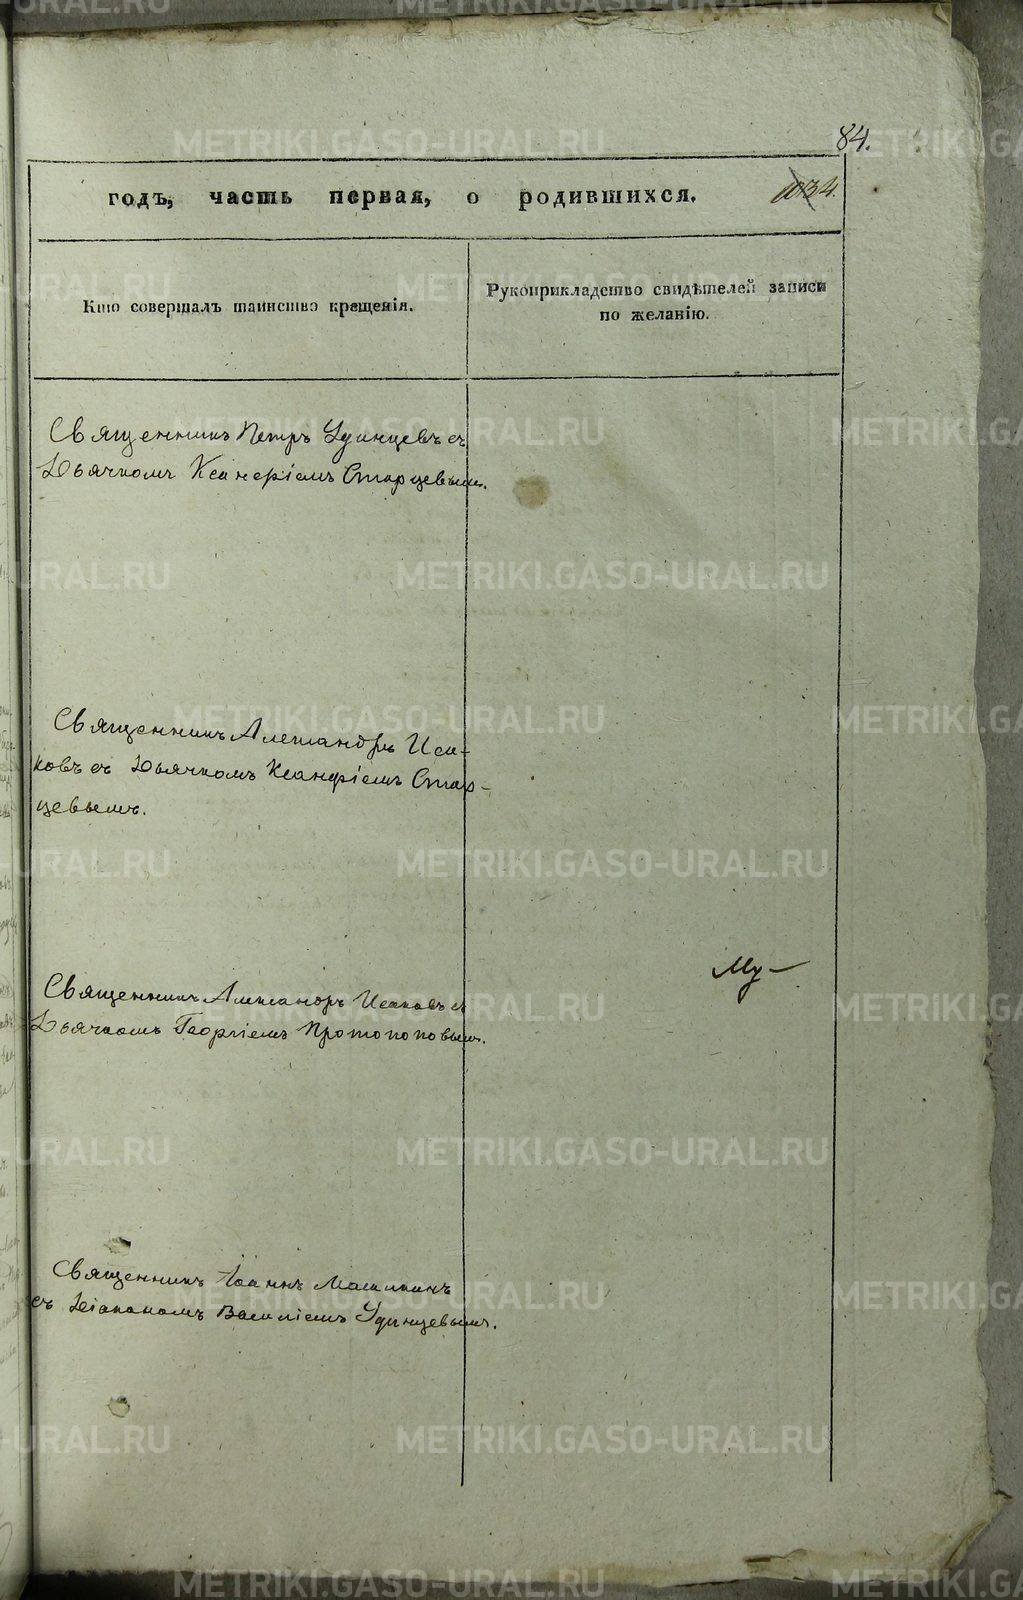 84.
годъ, часть первая, о родившихся.
Кто совершалъ таинство крещенія.
Рукоприкладство свидѣтелей записи
по желанію.
Священникъ Петръ Удинцевъ съ
Дьячкомъ Ксанѳріемъ Старцевымъ.
Священникъ Александръ Иса-
ковъ съ Дьячкомъ Ксанфіемъ Стар-
цевымъ.
Священникъ Александръ Исаковъ съ
Дьячкомъ Георгіемъ Протопоповым.
Му-
Священникъ Іоаннъ
съ Діакономъ Василіемъ Удинцевымъ.
METRIKI.GASO-URAL.RU